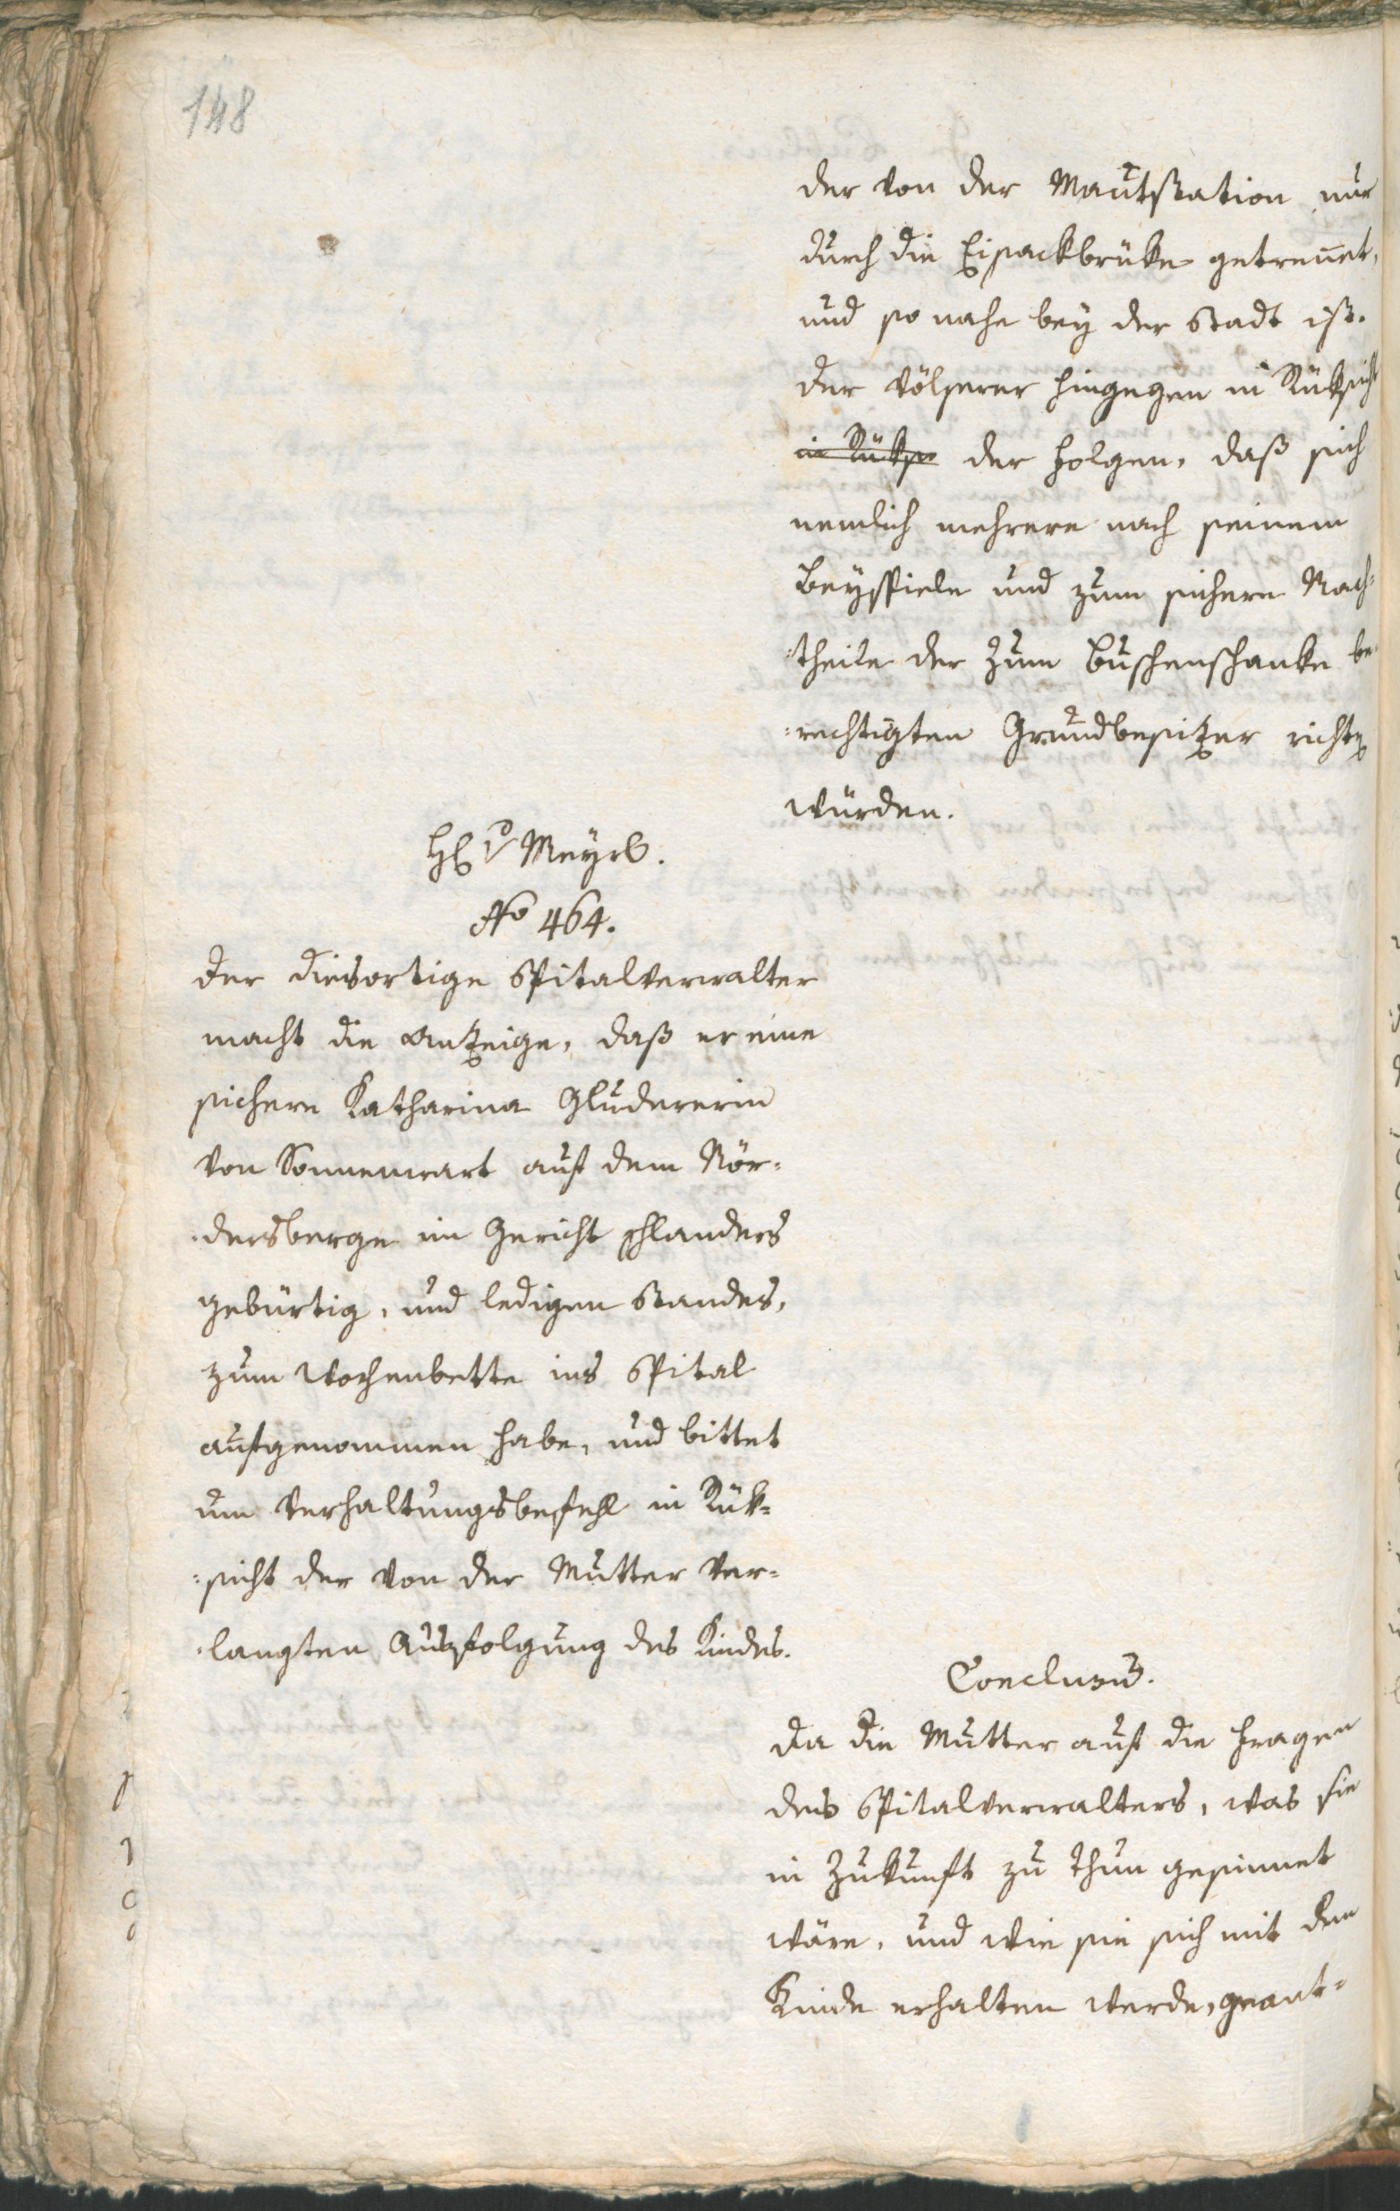 148
der von der Mautstation nur
durch die Eisackbrüke getrennet,
und so nahe bey der Stadt ist.
der Völserer hingegen in Rüksicht
in Rükse der Folgen, daß sich
nemlich mehrere nach seinem
Beyspiele und zum sichern Nach-
:theile der zum Buschenschanke be-
:rechtigten Grundbesitzer richten
würden.
H. v Meyrl.
No 464.
Der diesortige Spitalverwalter
macht die Anzeige, daß er eine
sichere Katharina Gluderer​in
von Sonnenwart auf dem Nör-
:dersberge im Gericht Schlanders
gebürtig, und ledigen Standes,
zum Wochenbette ins Spital
aufgenommen habe, und bittet
um Verhaltungsbefehl in Rük-
:sicht der von der Mutter ver-
:langten Ausfolgung des Kindes.
Conclusum.
Da die Mutter auf die Fragen
des Spitalverwalters, was sie
in Zukunft zu thun gesinnet
wäre, und wie sie sich mit dem
Kinde erhalten werde, geant-